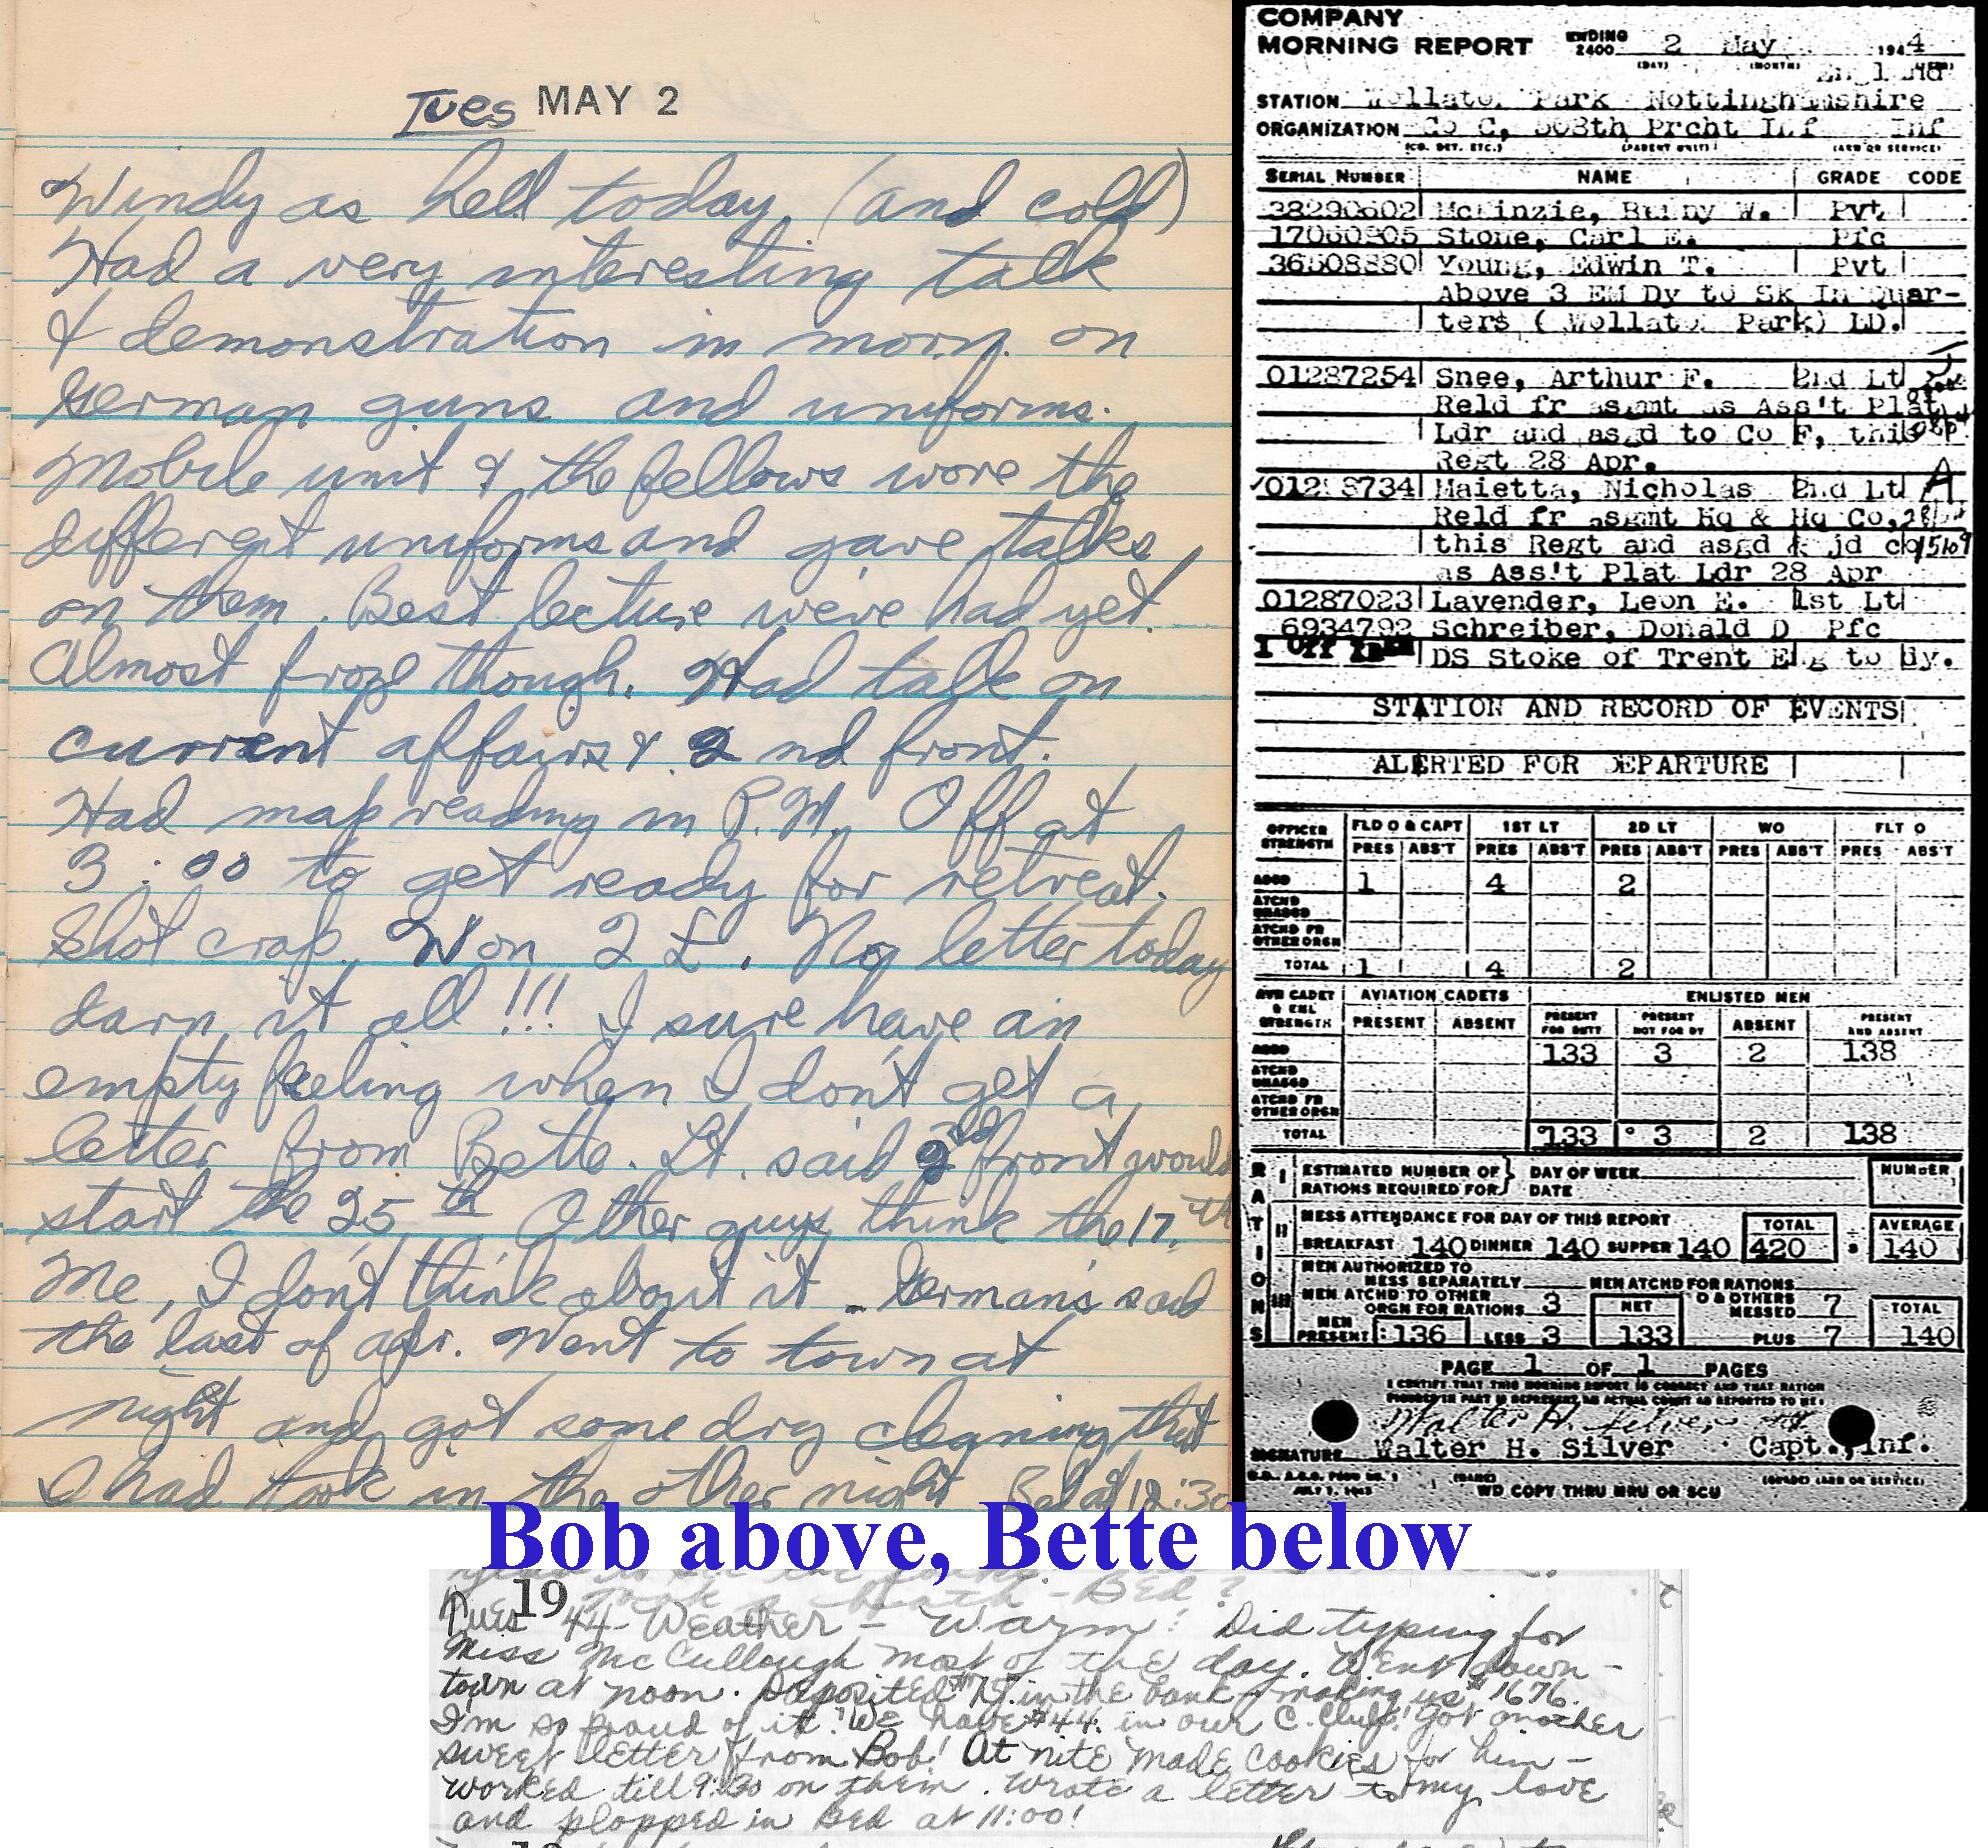 Tues MAY 2
Windy as hell today. (and cold)
Had a very interesting talk
& demonstration in morn. on
German guns and uniforms.
Mobile unit & the fellows wore the
different uniforms and gave talks
on them. Best lecture we've had yet.
Almost froze though. Had talk on
current affairs & 2nd front.
Had map reading in P.M. Off at
3:00 to get ready for retreat.
Shot crap. Won 2 £. No letter today
darn it all!!! I sure have an
empty feeling when I don't get a
letter from Bette. Lt. said 2nd front would
start the 25th. Other guys think the 17th
Me, I don't think about it. German's said
the last of apr. Went to town at
night and got some dry cleaning that
I had took in the other night. Bed at 12:30
COMPANY
MORNING REPORT ENDING 2400 2 May 1944
(DAY) (MONTH)
England
STATION Wollaton Park Nottinghamshire
ORGANIZATION Co C, 508th Prcht Inf Inf
(CO. DET. ETC.) (PARENT UNIT) (ARM OR SERVICE)
SERIAL NUMBER NAME GRADE CODE
38290602 McKinzie, W. Pvt
17060805 Stone, Carl E. Pfc
36508880 Young, Edwin T. Pvt
Above 3 EM Dy to Sk In Quar-
ters ( Wollaton Park) LD.
01287254 Snee, Arthur F. 2nd Lt
Reld fr asgmt as Ass't Plat
Ldr and asgd to Co F, this
Regt 28 Apr.
Maietta, Nicholas 2nd Lt A
Reld fr asgmt Hq & Hq Co,
this Regt and asgd & jd co
as Ass't Plat Ldr 28 Apr
01287023 Lavender, Leon E. 1st Lt
6934792 Schreiber, Donald D Pfc
DS Stoke of Trent Eng to Dy.
STATION AND RECORD OF EVENTS
ALERTED FOR DEPARTURE
OFFICER STRENGTH FLD O & CAPT 1ST LT 2D LT WO FLT O
PRES ABS'T PRES ABS'T PRES ABS'T PRES ABS'T PRES ABS'T
ASGD 1 4 2
ATCHD UNASGD
ATCHD FR OTHER ORGN
TOTAL 1 4 2
AVN CADET & ENL STRENGTH AVIATION CADETS ENLISTED MEN
PRESENT ABSENT PRESENT FOR DUTY PRESENT NOT FOR DY ABSENT PRESENT AND ABSENT
ASGD 133 3 2 138
ATCHD UNASGD
ATCHD FR OTHER ORGN
TOTAL 133 3 2 138
RATIONS
I ESTIMATED NUMBER OF RATIONS REQUIRED FOR DAY OF WEEK DATE NUMBER
II MESS ATTENDANCE FOR DAY OF THIS REPORT TOTAL AVERAGE
BREAKFAST 140 DINNER 140 SUPPER 140 420 ÷ 3 140
III MEN AUTHORIZED TO MESS SEPARATELY MEN ATCHD FOR RATIONS
MEN ATCHD TO OTHER ORGN FOR RATIONS 3 NET O & OTHERS MESSED 7 TOTAL
MEN PRESENT 136 LESS 3 133 PLUS 7 140
PAGE 1 OF 1 PAGES
I CERTIFY THAT THIS MORNING REPORT IS CORRECT AND THAT RATION
FIGURES IN PART III REPRESENT AN ACTUAL COUNT AS REPORTED TO ME:
Walter H. Silver
SIGNATURE Walter H. Silver Capt., Inf.
W.D., A.G.O. FORM NO. 1 (NAME) (GRADE) (ARM OR SERVICE)
JULY 1, 1943 WD COPY THRU MRU OR SCU
Bob above, Bette below
Took a bath - Bed?
19
Tues 44 - Weather - Warm! Did typing for
Miss McCullough most of the day. Went down-
town at noon. Deposited $75. in the bank - making us $1676.
I'm so proud of it! We have $44. in our C. Club! Got another
sweet letter from Bob! At nite made cookies for him -
worked till 9:30 on them. Wrote a letter to my love
and plopped in Bed at 11:00!